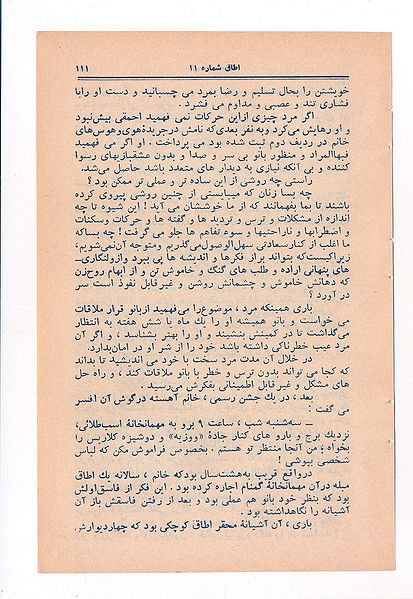 اطاق شماره ۱۱
۱۱۱
خویشتن را بحال تسلیم و رضا بمرد می چسبانید و دست او رابا
فشاری تند و عصبی و مداوم می فشرد .
اگر مرد چیزی ازاین حرکات نمی فهمید احمقی بیش‌نبود
و او رهایش می‌کرد وبه نفر بعدی‌که نامش درجریدهٔ‌هوی‌وهوس‌های
خانم در ردیف دوم ثبت شده بود می پرداخت . او اگر می فهمید
فبهاالمراد و منظور بانو بی سر و صدا و بدون عشقبازیهای رسوا
کننده و بی آنکه نیازی به دیدار های متعدد باشد حاصل می‌شد.
راستی چه روشی از این ساده تر و عملی تر ممکن بود ؟
چه بسا زنان که میبایستی از چنین روشی پیروی کرده
باشند تا بما بفهمانند که از ما خوششان می‌آید ! این شیوه تا چه
اندازه از مشکلات و ترس و تردید ها و گفته ها و حرکات وسکنات
و اضطرابها و ناراحتیها و سوء تفاهم ها جلو می گرفت ! چه بساکه
ما اغلب از کنارسعادتی سهل‌الوصول‌می‌گذریم ومتوجه آن‌نمی‌شویم،
زیراکیست‌که بتواند براز فکرها و اندیشه ها پی ببرد وازولنگاری‌ـ
های پنهانی اراده و طلب های گنگ و خاموش تن و از ابهام روح‌زن
که دهانش خاموش و چشمانش روشن و غیرقابل نفوذ است سر
در آورد ؟
باری همینکه مرد ، موضوع‌را می‌فهمید ازبانو قرار ملاقات
می خواست و بانو همیشه او را یك ماه یا شش هفته به انتظار
می‌گذاشت تا در کمینش بنشیند و او را بهتر بشناسد ، و اگر آن
مرد عیب خطرناکی داشته باشد خود را از شر او در امان‌بدارد.
در خلال آن مدت مرد سخت با خود می اندیشید تا بداند
که کجا می تواند بدون ترس و خطر با بانو ملاقات کند ، و راه حل
های مشکل و غیر قابل اطمینانی بفکرش می‌رسید .
بعد ، در یك جشن رسمی ، خانم آهسته درگوش آن افسر
می گفت :
ــ سه‌شنبه شب ، ساعت ۹ برو به مهمانخانهٔ اسب‌طلائی،
نزدیك برج و بارو های کنار جادهٔ «ووزیه» و دوشیزه کلاریس را
بخواه ، من آنجا منتظر تو هستم . بخصوص فراموش مکن که لباس
شخصی بپوشی !
درواقع قریب به‌هشت‌سال بودکه خانم ، سالانه یك اطاق
مبله درآن مهمانخانهٔ گمنام اجاره کرده بود . این فکر از فاسق‌اولش
بود که بنظر خود بانو هم عملی بود و بعد از رفتن فاسقش باز آن
آشیانه را نگاهداشته بود .
باری ، آن آشیانهٔ محقر اطاق کوچکی بود که چهاردیوارش